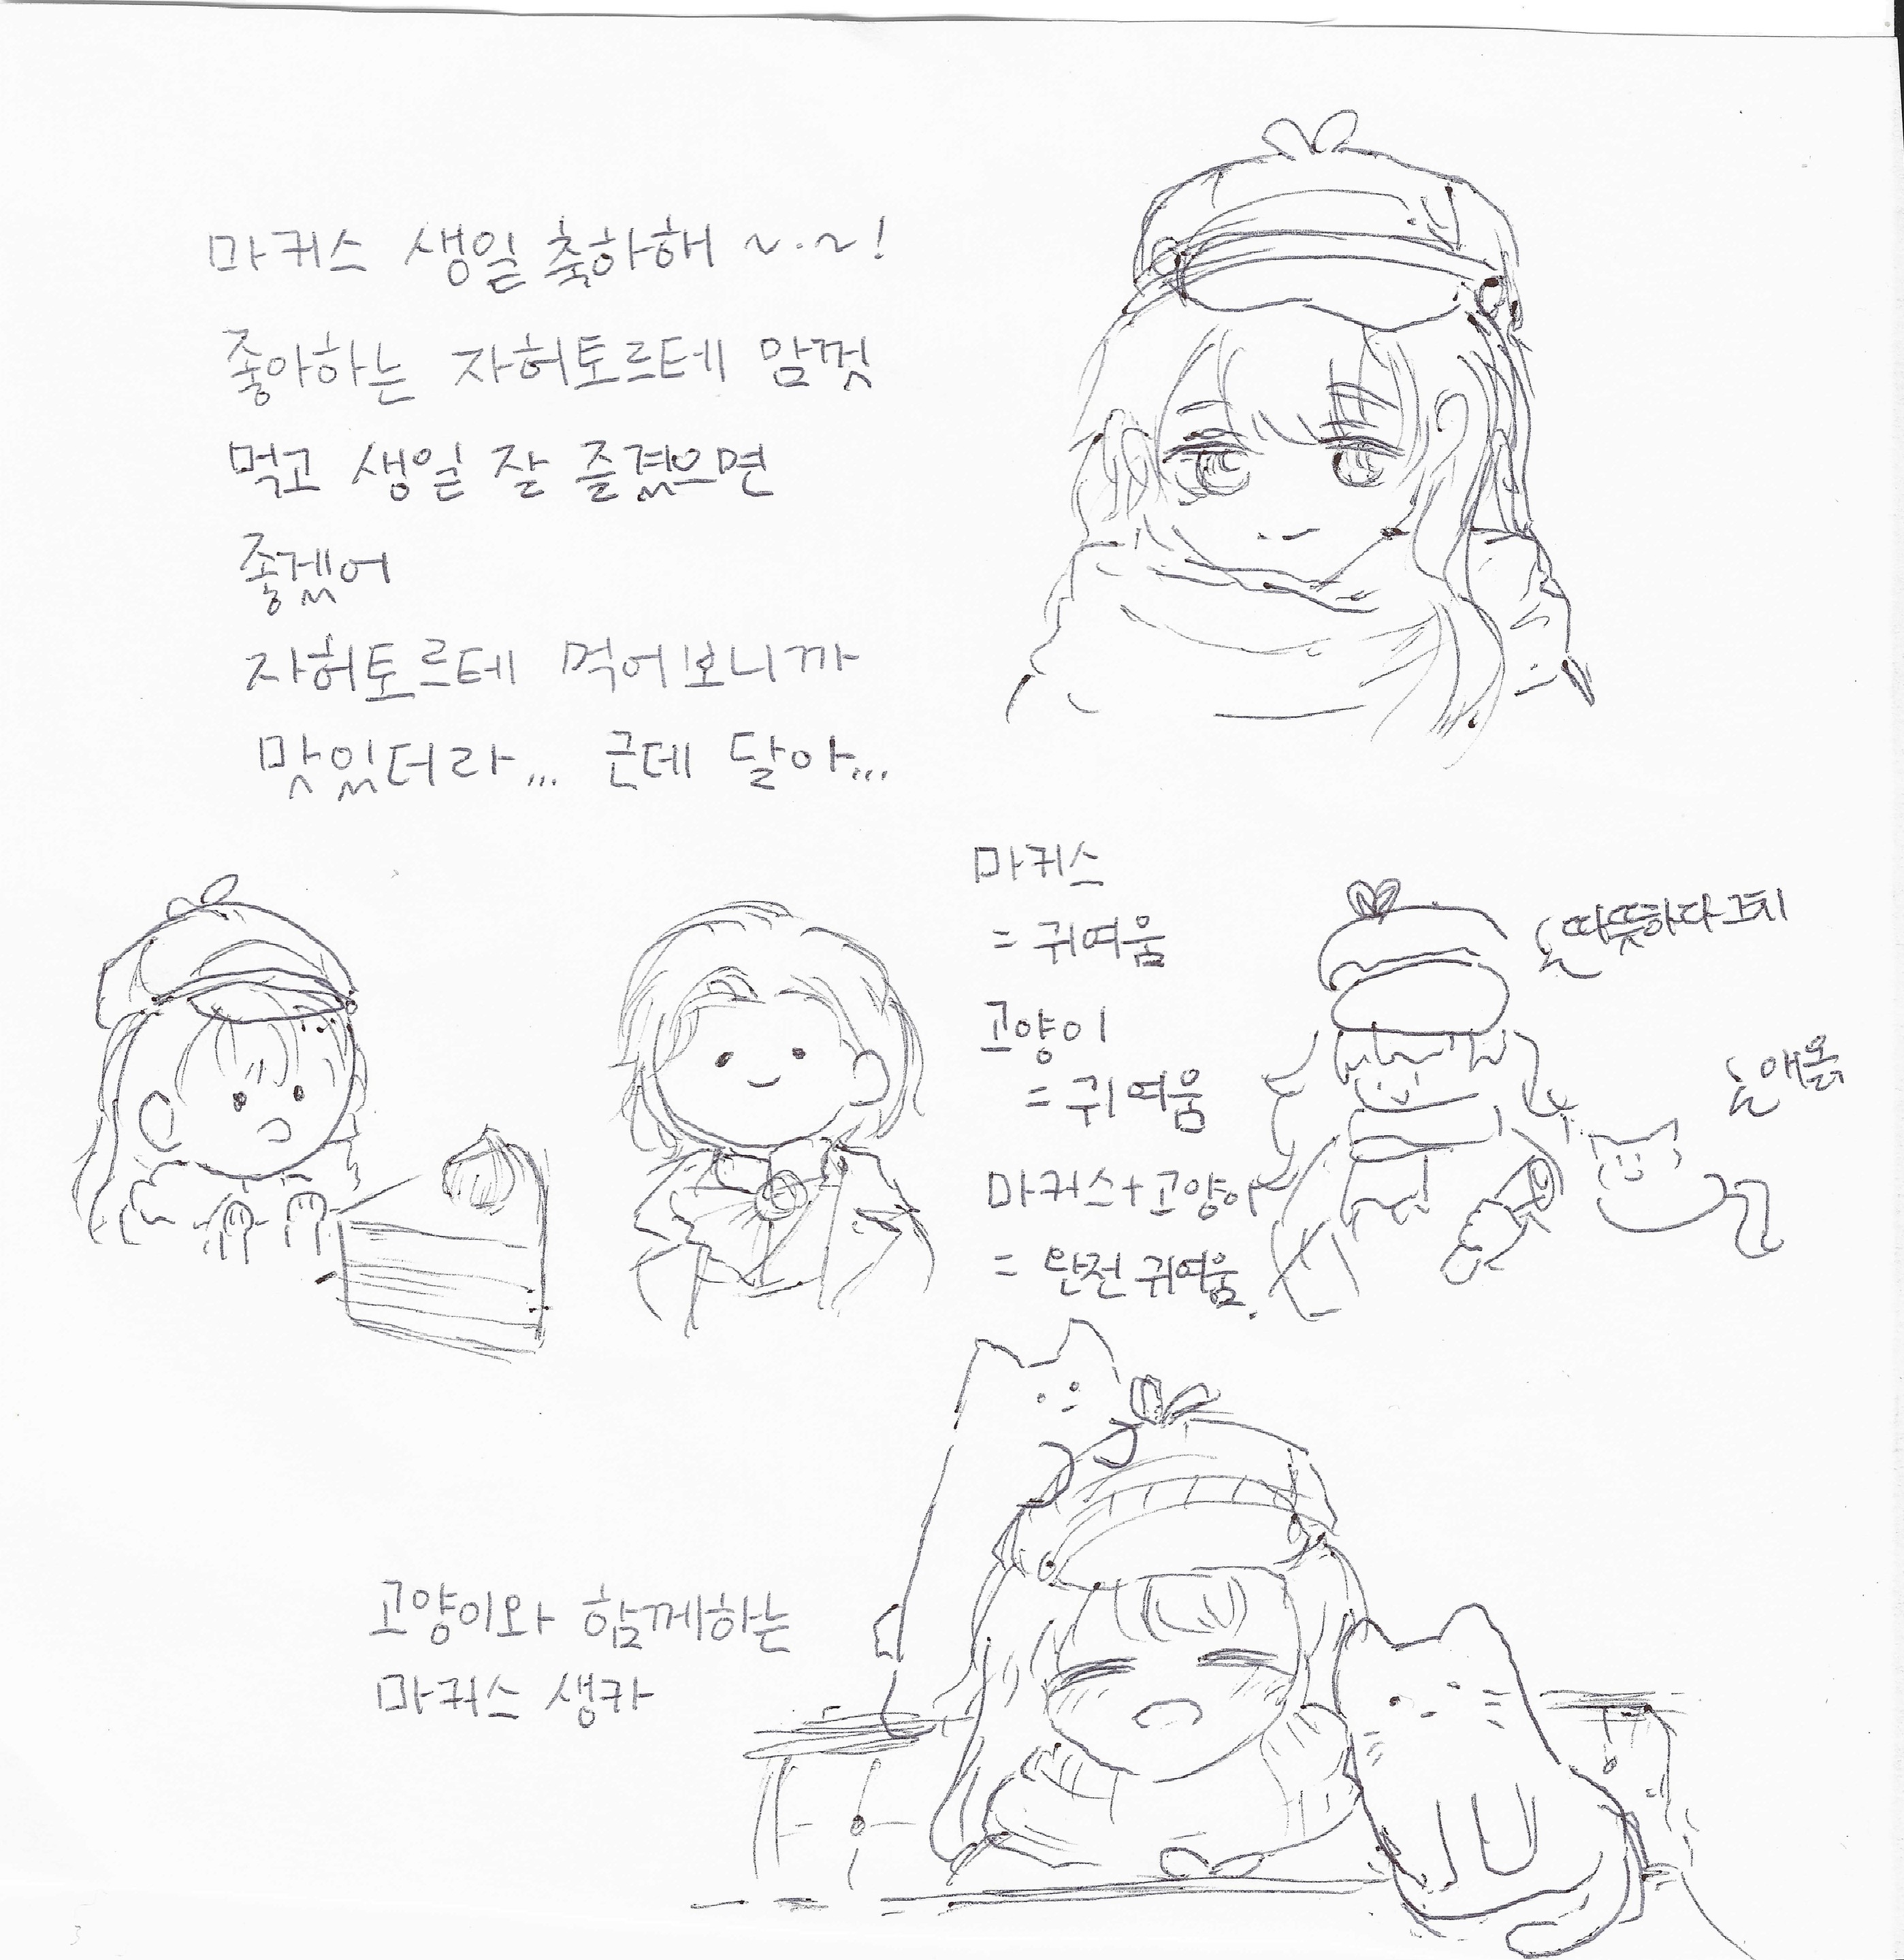 마커스 생일 축하해 ~.~!
좋아하는 자허토르테 맘껏
먹고 생일 잘 즐겼으면
좋겠어
자허토르테 먹어보니까
맛있더라... 근데 달아...
마커스
= 귀여움
고양이
= 귀여움
마커스+고양이
= 완전 귀여움.
따뜻하다 그치
애옭
고양이와 함께하는
마커스 생카